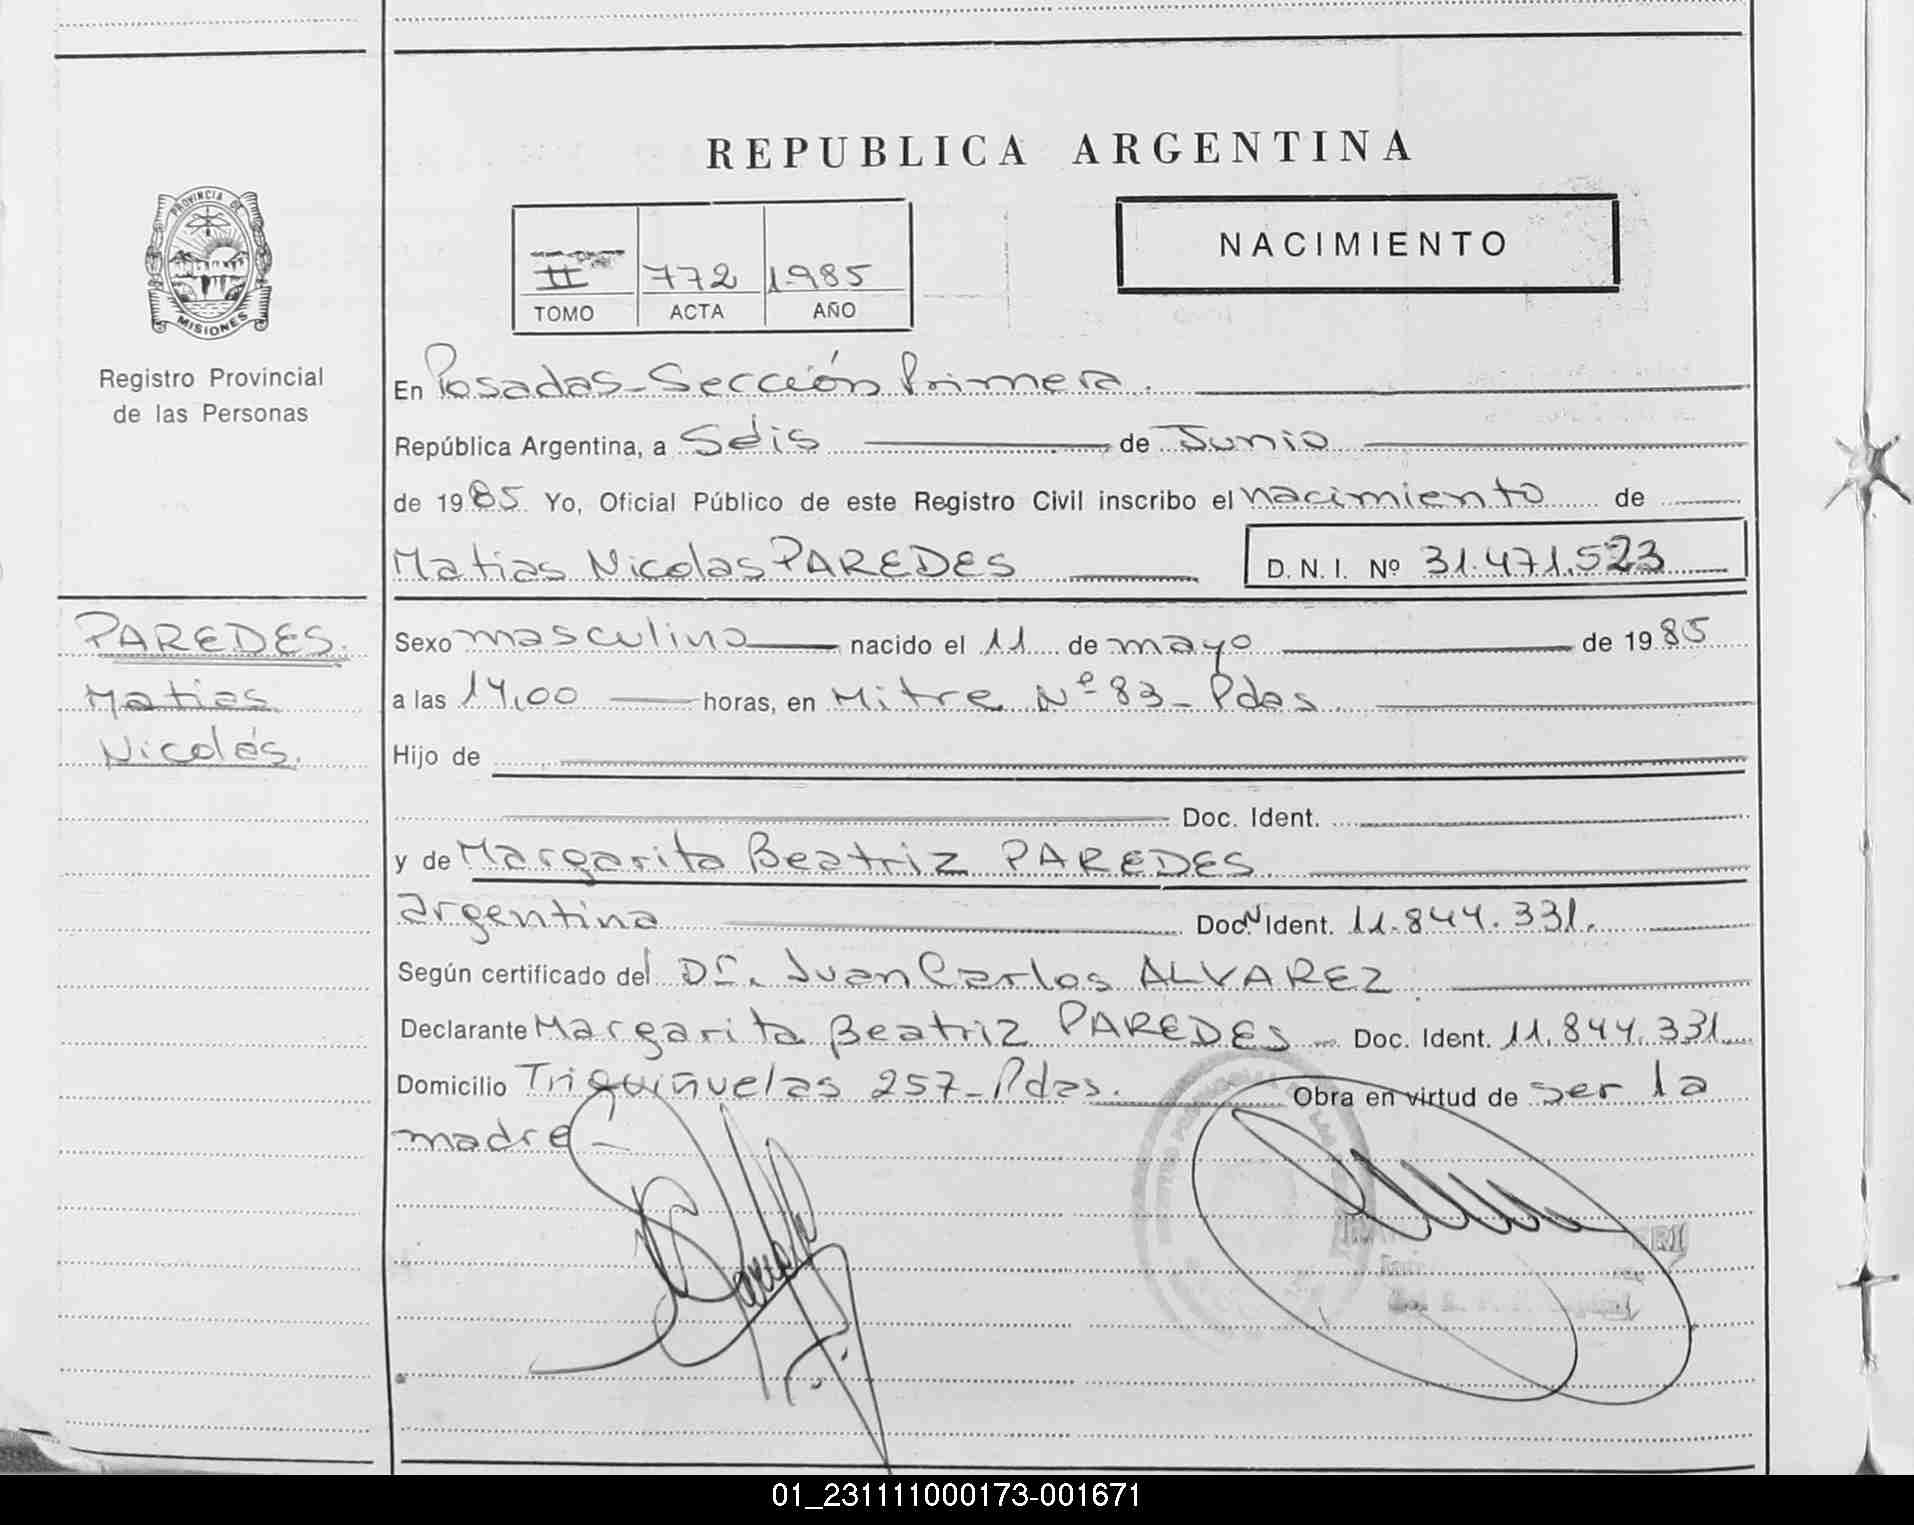 REPUBLICA ARGENTINA
PROVINCIA DE
MISIONES
Registro Provincial
de las Personas
II 772 1985
TOMO ACTA AÑO
NACIMIENTO
En Posadas-Sección Primera.
República Argentina, a Seis de Junio
de 1985 Yo, Oficial Público de este Registro Civil inscribo el nacimiento de
Matias Nicolas PAREDES D. N. I. Nº 31.471.523
PAREDES.
Matias
Nicolás.
Sexo masculino nacido el 11 de mayo de 1985
a las 14,00 horas, en Mitre Nº 83- Pdas.
Hijo de
Doc. Ident.
y de Margarita Beatriz PAREDES.
argentina Doc.N Ident. 11.844.331.
Según certificado del Dr. Juan Carlos ALVAREZ
Declarante Margarita Beatriz PAREDES Doc. Ident. 11.844.331
Domicilio Triquiñuelas 257-Pdas. Obra en virtud de ser la
madre-
01_231111000173-001671